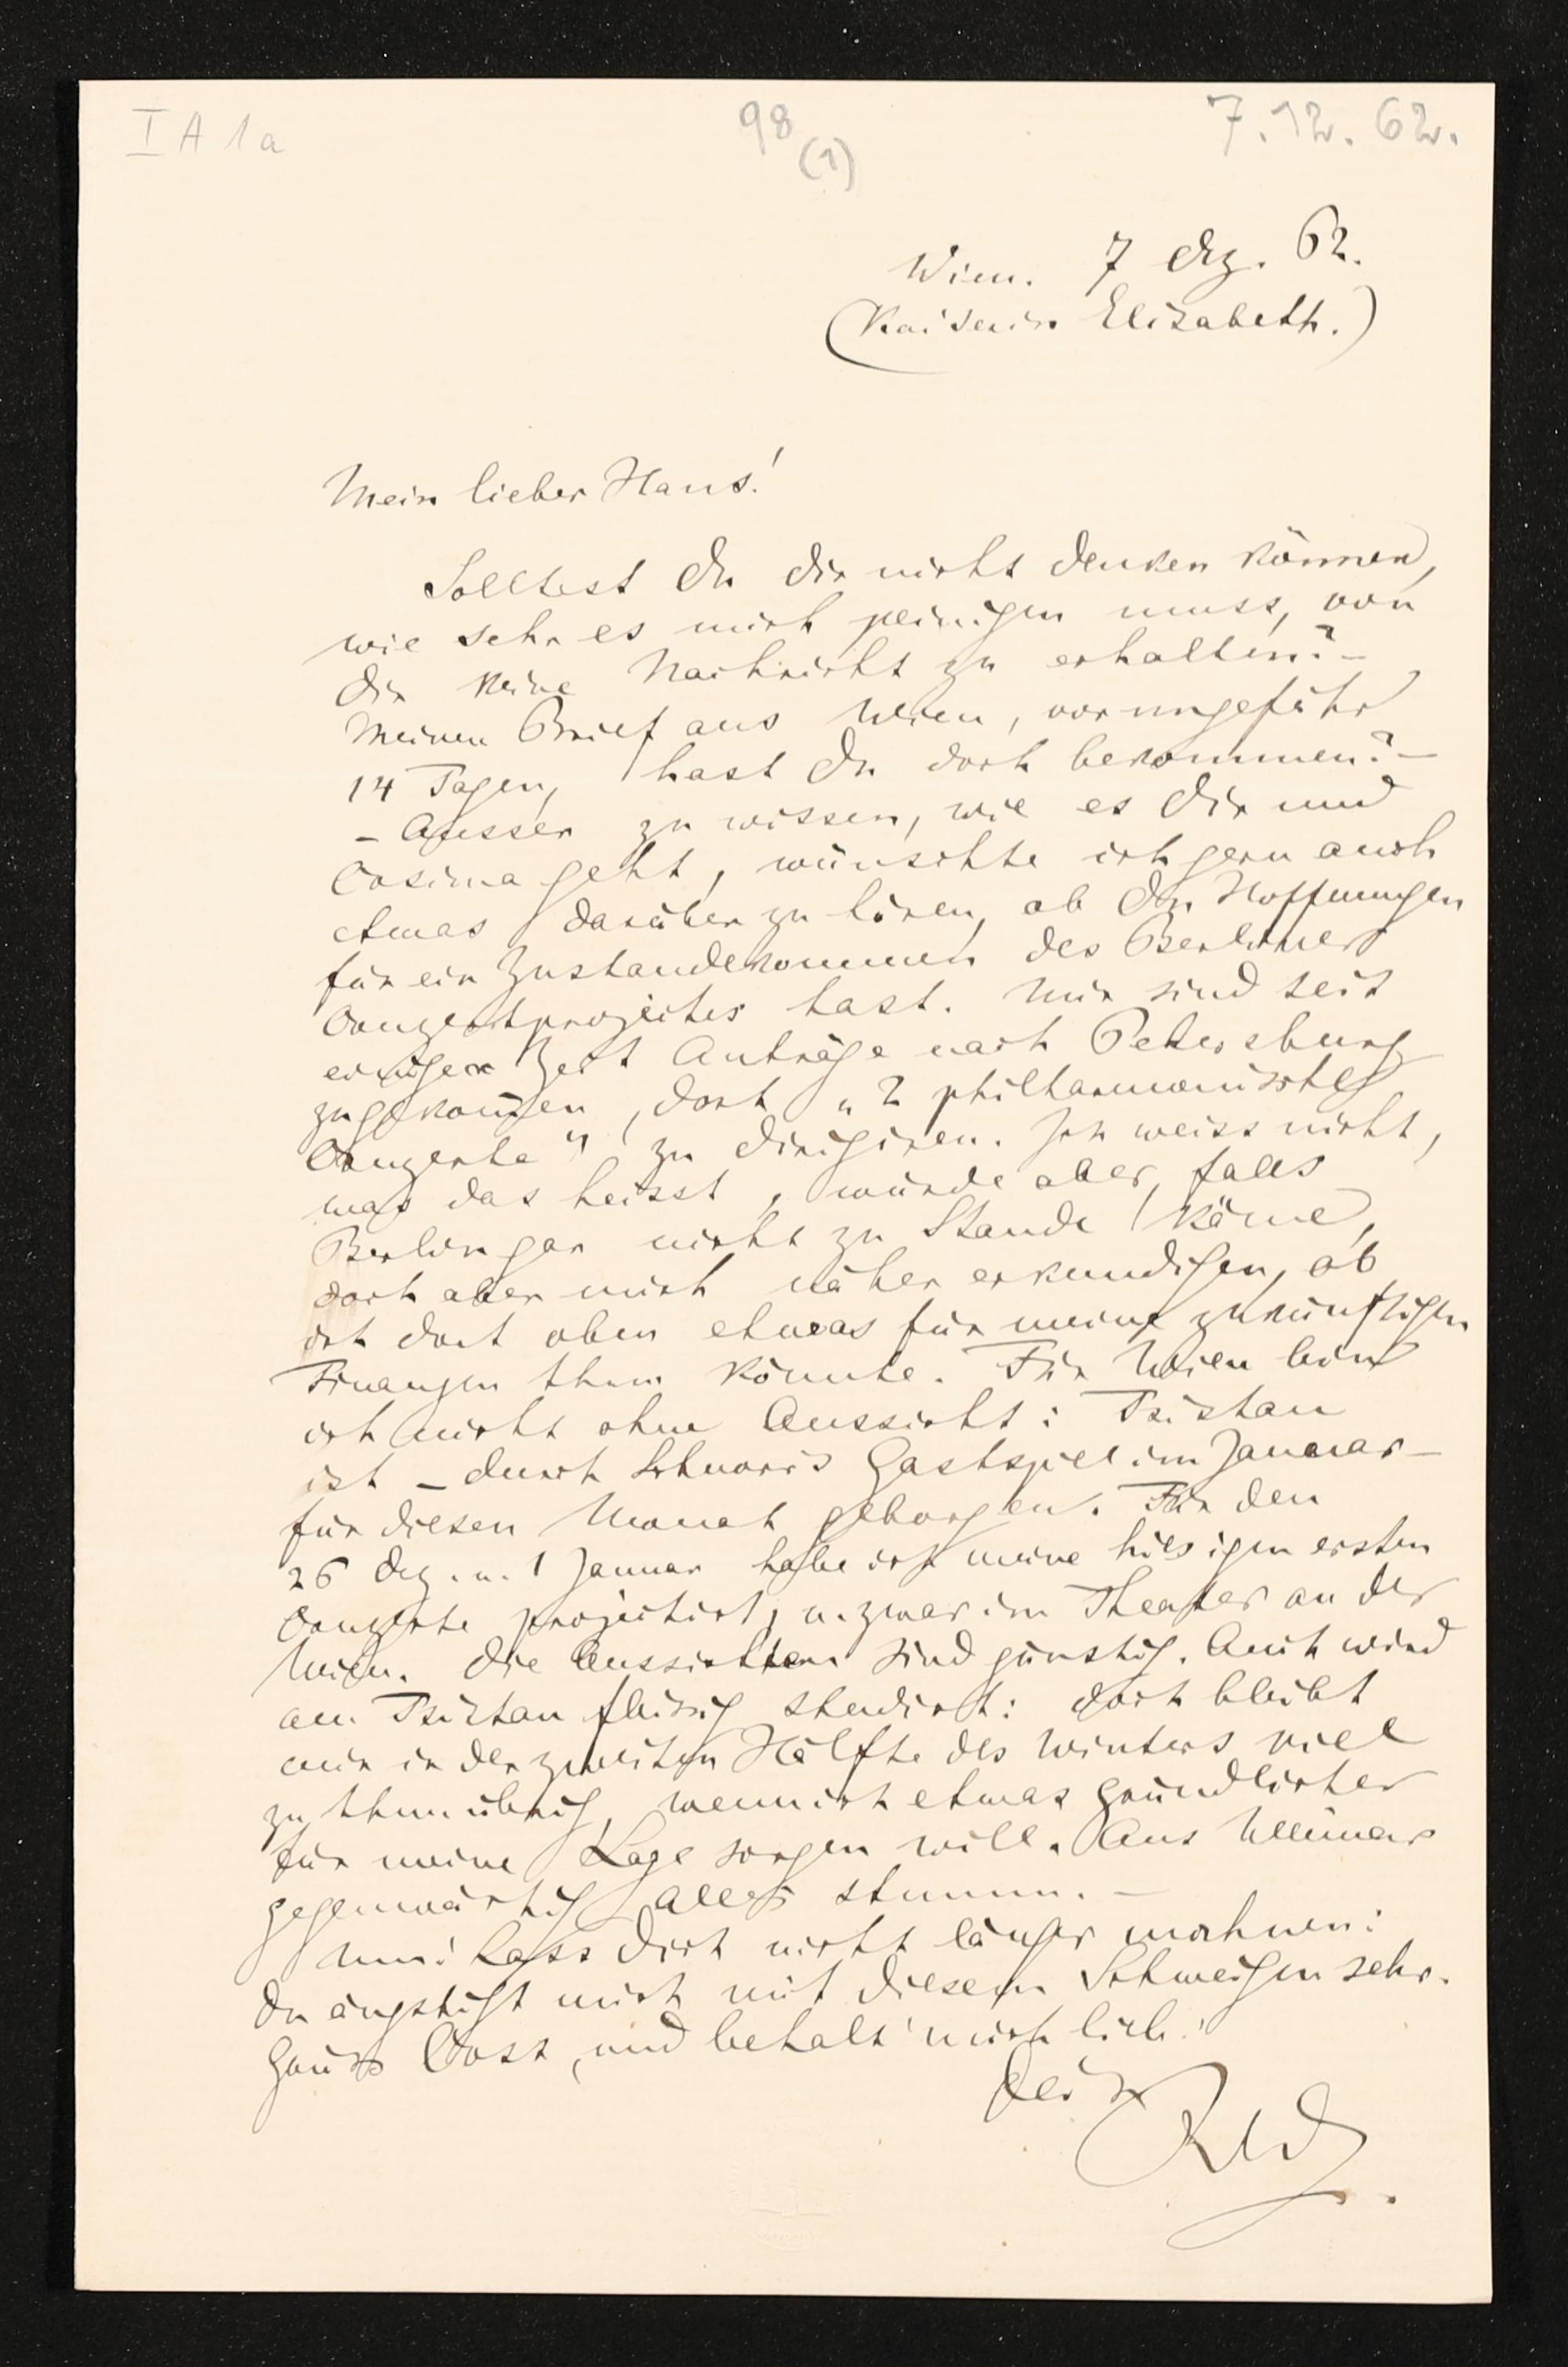 I A 1a
98
(1)
7.12.62.
Wien. 7 Dez. 62.
(Kaiserin Elisabeth.)
Mein lieber Hans!
Solltest Du Dir nicht denken können,
wie sehr es mich peinigen muss, von
Dir keine Nachricht zu erhalten? –
Meinen Brief aus Wien, vor ungefähr
14 Tagen, hast Du doch bekommen? –
– Ausser zu wissen, wie es Dir und
Cosima geht, wünschte ich gern auch
etwas darüber zu hören, ob Du Hoffnungen
für ein Zustandekommen des Berliner
Conzertprojectes hast. Mir sind seit
einiger Zeit Anträge nach Petersburg
zugekom̄en, dort „2 philharmonische
Conzerte" zu dirigiren. Ich weiss nicht,
was das heisst, würde aber, falls
Berlin gar nicht zu Stande käme,
doch aber mich näher erkundigen, ob
ich dort oben etwas für meine zukünftigen
Finanzen thun könnte. Für Wien bin
ich nicht ohne Aussicht: Tristan
ist – durch Schnorr's Gastspiel im Januar –
für diesen Monat geborgen. Für den
26 Dez. u. 1 Januar habe ich meine hiesigen ersten
Conzerte projectirt, u. zwar im Theater an der
Wien. Die Aussichten sind günstig. Auch wird
am Tristan fleissig studirt: doch bleibt
mir in der zweiten Hälfte des Winters viel
zu thun übrig, wenn ich etwas gründlicher
für meine Lage sorgen will. Aus Weimar
gegenwärtig alles stumm. –
Nun! Lass Dich nicht länger mahnen:
Du ängstigst mich mit diesem Schweigen sehr.
Grüss Cos., und behalt' mich lieb!
Dein
RW.